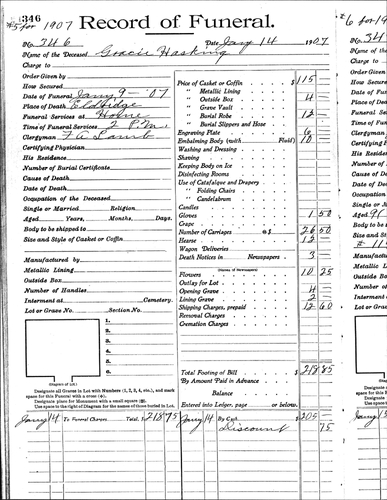 346
#5 for 1907 Record of Funeral.
No. 346 Date Jany 14 1907
Name of the Deceased Gracie Hasking
Charge to
Order Given by
How Secured
Date of Funeral Jany 9 - '07
Place of Death Eldridge
Funeral Services at Home
Time of Funeral Services 2 P.M.
Clergyman T. A. Lamb
Certifying Physician
His Residence
Number of Burial Certificate
Cause of Death
Date of Death
Occupation of the Deceased
Single or Married Religion
Aged Years, Months, Days.
Body to be shipped to
Size and Style of Casket or Coffin
Manufactured by
Metallic Lining
Outside Box
Number of Handles
Interment at Cemetery.
Lot or Grave No. Section No.
1.
2.
3.
4.
5.
6.
(Diagram of Lot.)
Designate all Graves in Lot with Numbers (1, 2, 3, 4, etc.), and mark
space for this Funeral with a cross (+).
Designate place for Monument with a small square
Use space to the right of Diagram for the names of those buried in Lot.
Jany 14 To Funeral Charges Total, $ 218 75
Price of Casket or Coffin $ 115 —
" Metallic Lining
" Outside Box 4
" Grave Vault
" Burial Robe 12 —
" Burial Slippers and Hose
Engraving Plate 6 —
Embalming Body (with Fluid) 10 —
Washing and Dressing
Shaving
Keeping Body on Ice
Disinfecting Rooms
Use of Catafalque and Drapery
" Folding Chairs
" Candelabrum
Candles
Gloves 1 50
Crape
Number of Carriages @ $ 26 50
Hearse 12 —
Wagon Deliveries
Death Notices in Newspapers 3 —
(Names of Newspapers)
Flowers 10 25
Outlay for Lot
Opening Grave 4 —
Lining Grave 2 —
Shipping Charges, prepaid 12 60
Removal Charges
Cremation Charges
Total Footing of Bill $ 218 85
By Amount Paid in Advance
Balance
Entered into Ledger, page or below.
Jany 14 By Cash 205 —
Discount 75
#6 for 190
No. 34
Name of the
Charge to
Order Given
How Secured
Date of Funeral
Place of Death
Funeral Services
Time of Funeral
Clergyman
Certifying
His Residence
Number of
Cause of Death
Date of Death
Occupation of
Single or M
Aged
Body to be s
Size and Style
Manufactured
Metallic Li
Outside Box
Number of
Interment a
Lot or Grave